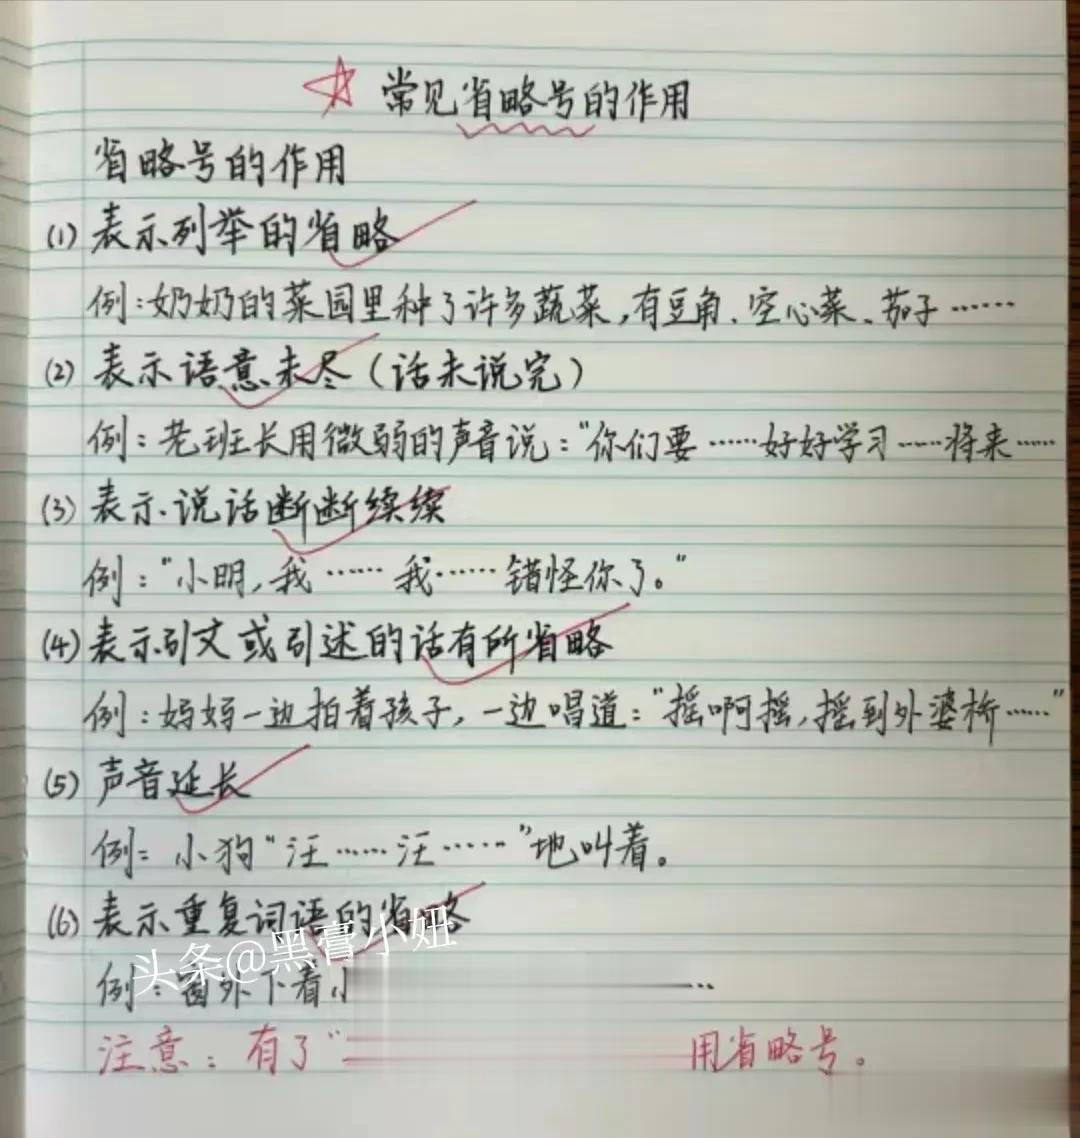 常见省略号的作用
省略号的作用
(1) 表示列举的省略
例:奶奶的菜园里种了许多蔬菜,有豆角、空心菜、茄子……
(2) 表示语意未尽(话未说完)
例:老班长用微弱的声音说:"你们要……好好学习……将来……
(3) 表示说话断断续续
例:"小明,我……我……错怪你了。"
(4) 表示引文或引述的话有所省略
例:妈妈一边拍着孩子,一边唱道:"摇啊摇,摇到外婆桥……"
(5) 声音延长
例:小狗"汪……汪……"地叫着。
(6) 表示重复词语的省略
头条@黑膏小妞
例:窗外下着
注意:有了" 用省略号。